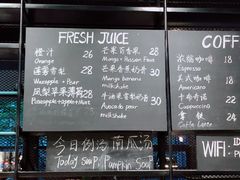 FRESH JUICE
橙汁 26
Orange
菠萝雪梨 28
Pineapple + Pear
凤梨苹果薄荷 28
Pineapple+apple+Mint
芒果百香果 28
Mango + Passion Fruit
芒果香蕉奶昔 30
Mango banana
milkshake
牛油果雪梨奶昔 30
Avocado pear
milkshake
今日例汤 南瓜汤
Today Soup: Pumpkin Soup
COFF
浓缩咖啡
Espresso
美式咖啡
Americano
卡布奇诺
Cappuccino
拿铁 24
Caffe Latte
WIFI: